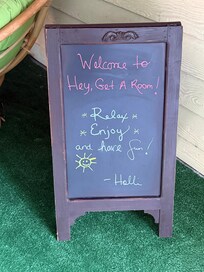 Welcome to
Hey, Get A Room!
* Relax *
* Enjoy *
and have fun!